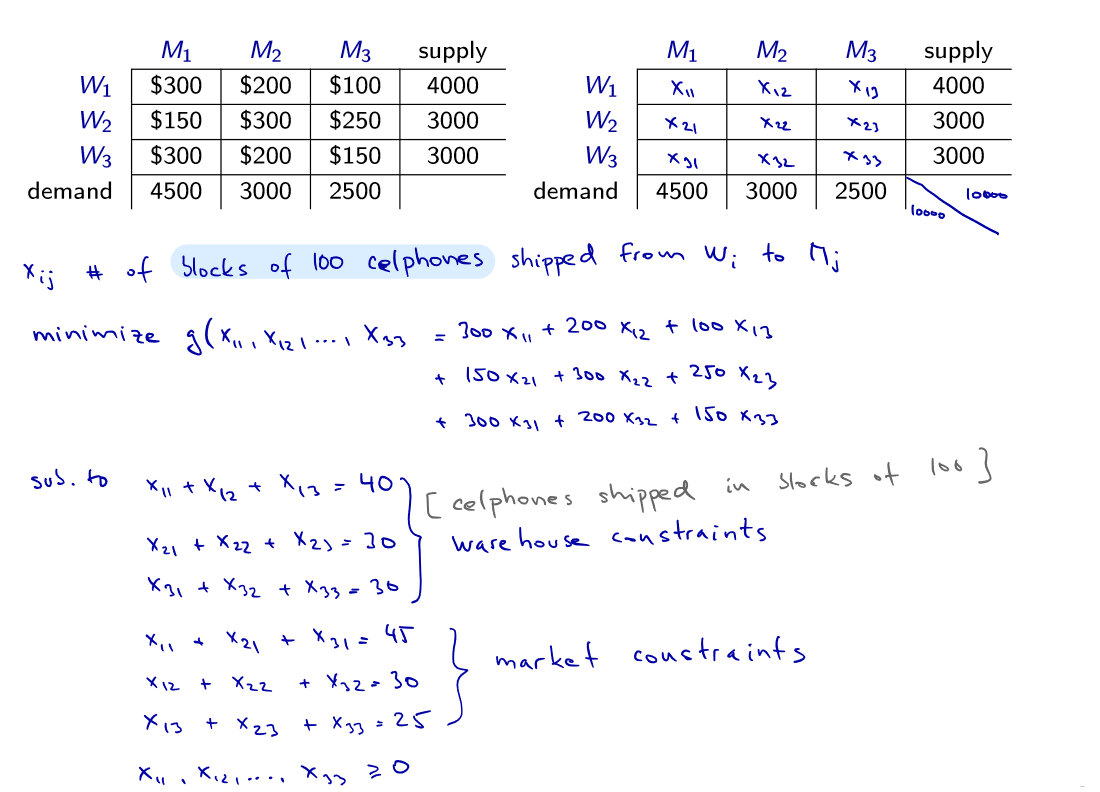 M₁ M₂ M₃ supply
W₁ $300 $200 $100 4000
W₂ $150 $300 $250 3000
W₃ $300 $200 $150 3000
demand 4500 3000 2500
M₁ M₂ M₃ supply
W₁ x₁₁ x₁₂ x₁₃ 4000
W₂ x₂₁ x₂₂ x₂₃ 3000
W₃ x₃₁ x₃₂ x₃₃ 3000
demand 4500 3000 2500 10000 10000
xᵢⱼ # of blocks of 100 celphones shipped from Wᵢ to Mⱼ
minimize g(x₁₁, x₁₂, ..., x₃₃ = 300 x₁₁ + 200 x₁₂ + 100 x₁₃
+ 150 x₂₁ + 300 x₂₂ + 250 x₂₃
+ 300 x₃₁ + 200 x₃₂ + 150 x₃₃
sub. to x₁₁ + x₁₂ + x₁₃ = 40 [celphones shipped in blocks of 100]
x₂₁ + x₂₂ + x₂₃ = 30 warehouse constraints
x₃₁ + x₃₂ + x₃₃ = 30
x₁₁ + x₂₁ + x₃₁ = 45
market constraints
x₁₂ + x₂₂ + x₃₂ = 30
x₁₃ + x₂₃ + x₃₃ = 25
x₁₁, x₁₂, ..., x₃₃ ≥ 0